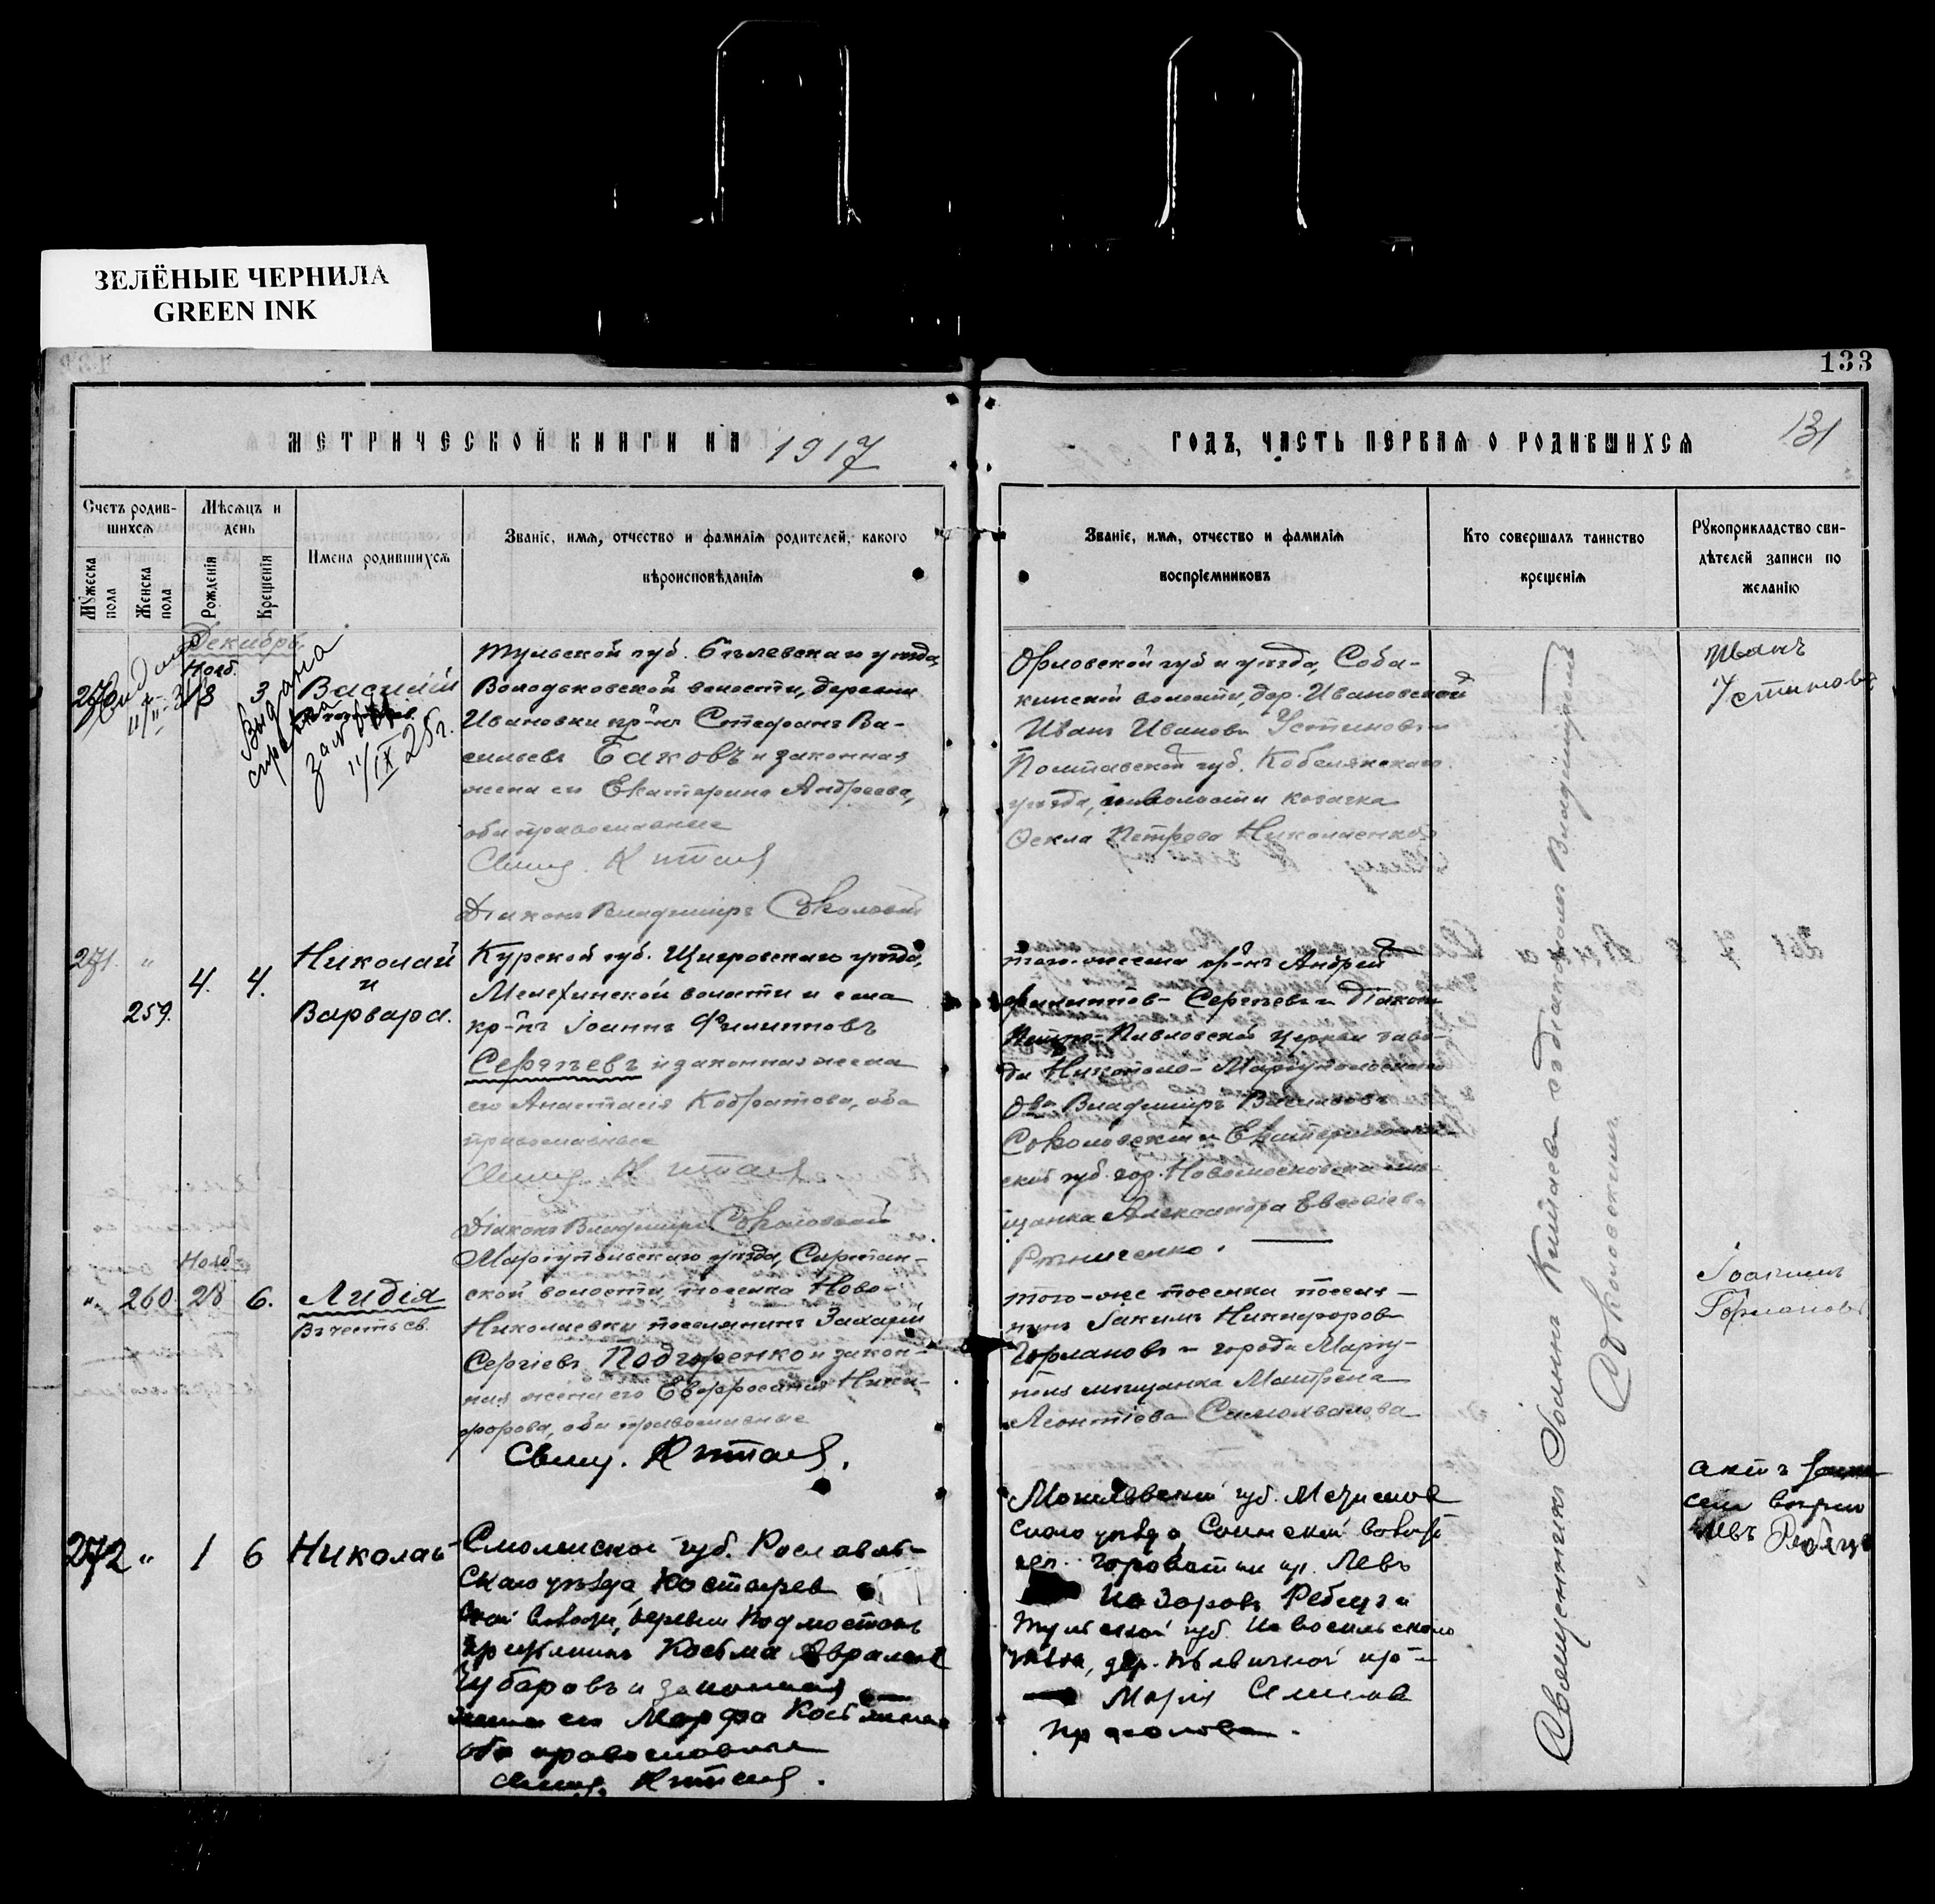 ЗЕЛЁНЫЕ ЧЕРНИЛА
GREEN INK
133
131
МЕТРИЧЕСКОЙ КНИГИ НА 1917
ГОДЪ, ЧАСТЬ ПЕРВАЯ О РОДИВШИХСЯ
Счетъ родив-
шихся
Мужеска
пола
Женска
пола
Мѣсяцъ и
день
Рожденія
Крещенія
Имена родившихся
Званіе, имя, отчество и фамилія родителей, какого
вѣроисповѣданія
Званіе, имя, отчество и фамилія
воспріемниковъ
Кто совершалъ таинство
крещенія
Рукоприкладство сви-
дѣтелей записи по
желанію
Декабрь
Нояб.
270 18 3 Василій
Выдана
справка
за №
11/IX 25 г.
Тульской губ. Бѣлевскаго уѣзда,
Володьковской волости, деревни
Ивановки кр-нъ Стефанъ Ва-
сильевъ Баковъ и законная
жена его Екатерина Андреева,
оба православные
Свящ. Китаев
Діаконъ Владимиръ Соколовскій
Орловской губ. и уѣзда, Соба-
кинской волости, дер. Ивановской
Иванъ Ивановъ Устиновъ и
Полтавской губ. Кобелякскаго
уѣзда, волости козачка
Ѳекла Петрова Николаенко
Иванъ
Устиновъ
271. " 4. 4. Николай
и
259. Варвара.
Курской губ. Щигровскаго уѣзда,
Мелехинской волости и села
кр-нъ Іоаннъ Филипповъ
Сергѣевъ и законная жена
его Анастасія Кодратова, оба
православные
Свящ. Китаев
Діаконъ Владимиръ Соколовскій
того-же села кр-нъ Андрей
Филипповъ Сергѣевъ и Діаконъ
Петро-Павловской церкви заво-
да Никополь-Маріупольскаго
О-ва Владимиръ Васильевъ
Соколовскій и Екатеринослав-
ской губ. гор. Новомосковска мѣ-
щанка Александра Евсеѣева
Рѣзниченко.
Нояб.
" 260 28 6. Лидія
Въ честь св.
Маріупольскаго уѣзда, Сартан-
ской волости, поселка Ново-
Николаевки поселянинъ Захарій
Сергіевъ Подгоренко и закон-
ная жена его Евфросинія Ники-
форова, оба православные
Свящ. Китаев.
того-же поселка поселя-
нинъ Іакимъ Никифоровъ
Гормановъ и города Маріу-
поля мѣщанка Матрена
Леонтіева Самойлова
Іоакимъ
Гормановъ
272 " 1 6 Николай
Смоленской губ. Рославль-
скаго уѣзда,
волости, деревни Подмостокъ
Косьма
Губаровъ и законная
жена его Марфа
оба православные
Свящ. Китаев.
Могилевской губ. Мстислав
скаго уѣзда волости
кр. Левъ
Ребецъ и
Тульской губ. Новосильскаго
уѣзда, дер.
Марія
Актъ
Левъ Ребецъ
Священникъ Іоаннъ Китаевъ съ діакономъ Владимиромъ
Соколовскимъ